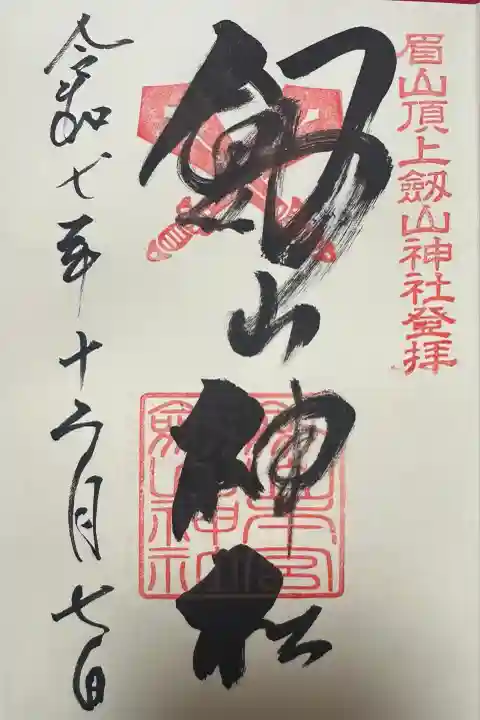 眉山頂上劔山神社登拝
劔山神社
令和七年十二月七日